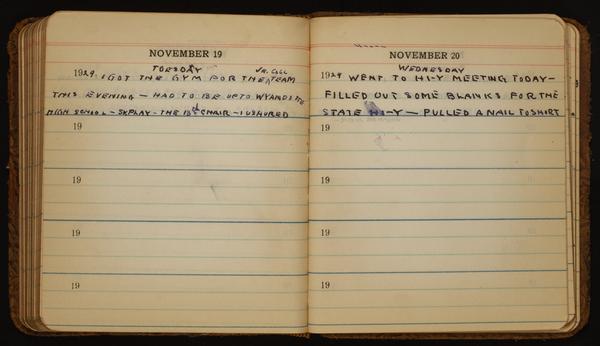 NOVEMBER 19
TUESDAY
JR. COLL
1929 I GOT THE GYM FOR THE TEAM
THIS EVENING — HAD TO BE UP TO WYANDOTTE
HIGH SCHOOL - SR PLAY - THE 13th CHAIR - I USHURED
19
19
19
19
NOVEMBER 20
WEDNESDAY
1929 WENT TO HI-Y MEETING TODAY-
FILLED OUT SOME BLANKS FOR THE
STATE HI-Y — PULLED A NAIL TO SHIRT
19
19
19
19